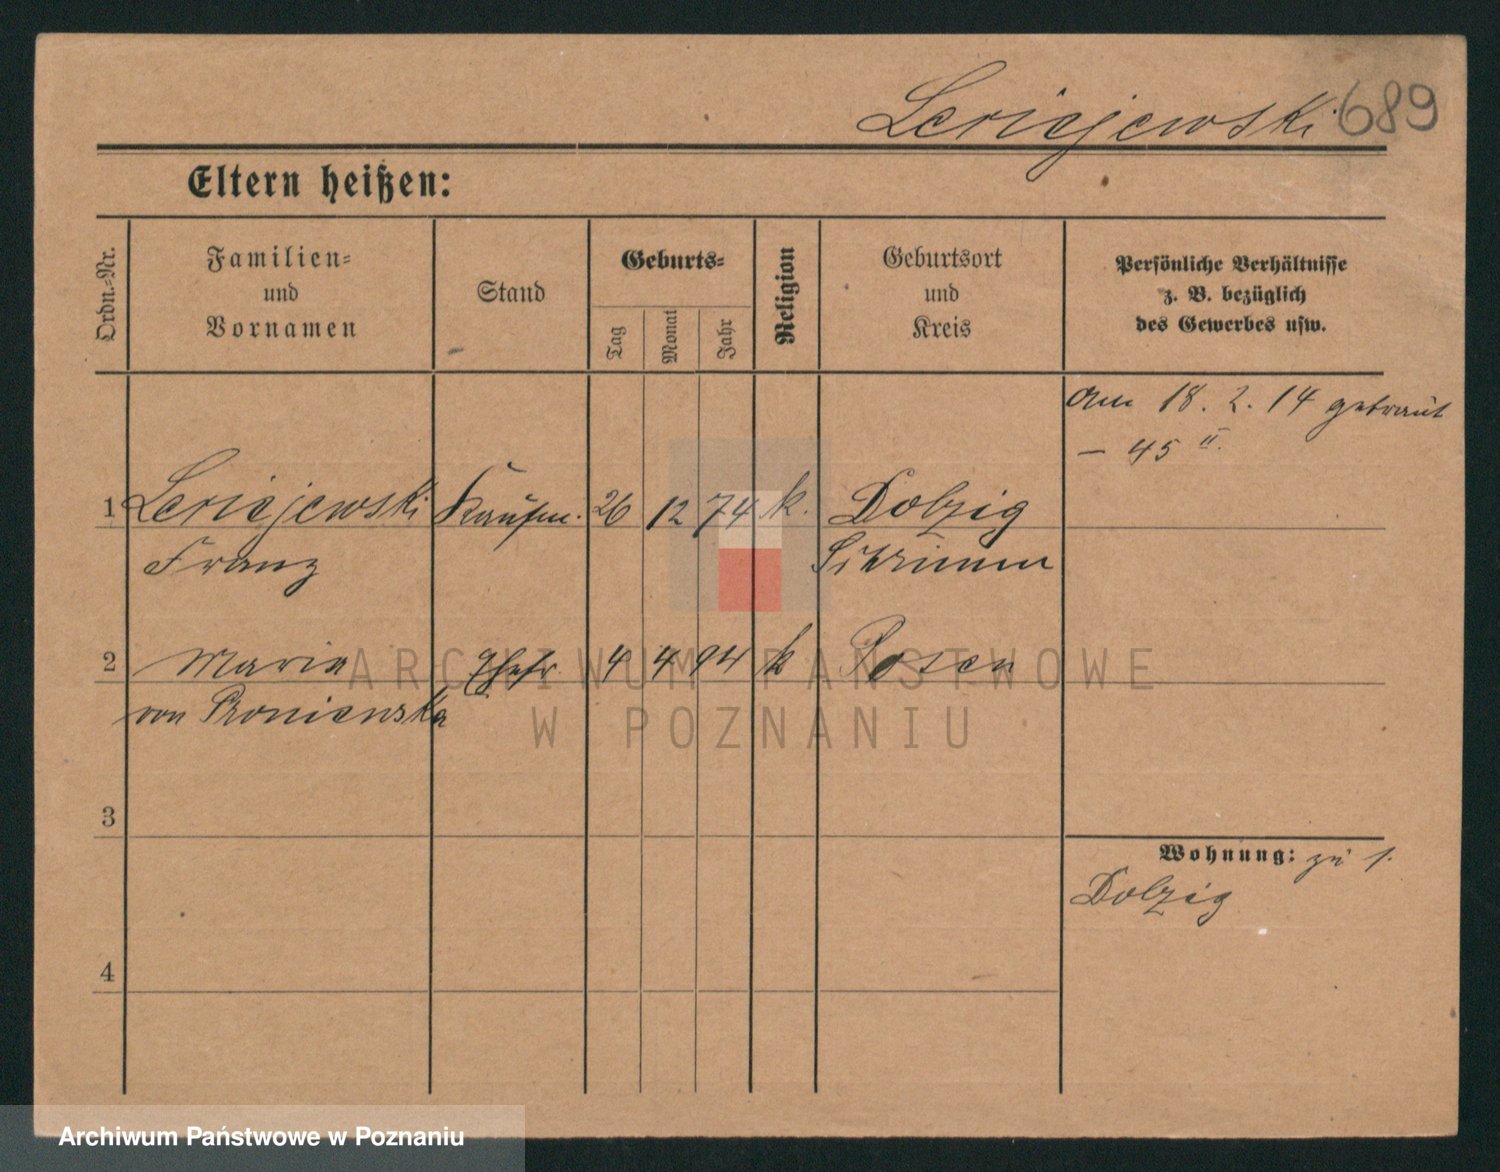 Leriejewski 689
Eltern heißen:
Ordn.-Nr.
Familien-
und
Vornamen
Stand
Geburts-
Tag
Monat
Jahr
Religion
Geburtsort
und
Kreis
Persönliche Verhältnisse
z. B. bezüglich
des Gewerbes usw.
Am 18. 2. 14 getraut
— 45 II.
1 Leriejewski Kaufm. 26 12 74 k. Dolzig
Franz Schrimm
2 Maria Ehefr 4 4 94 k Posen
von Proniewska
3
Wohnung: zu 1.
Dolzig
4
ARCHIWUM PAŃSTWOWE
W POZNANIU
Archiwum Państwowe w Poznaniu